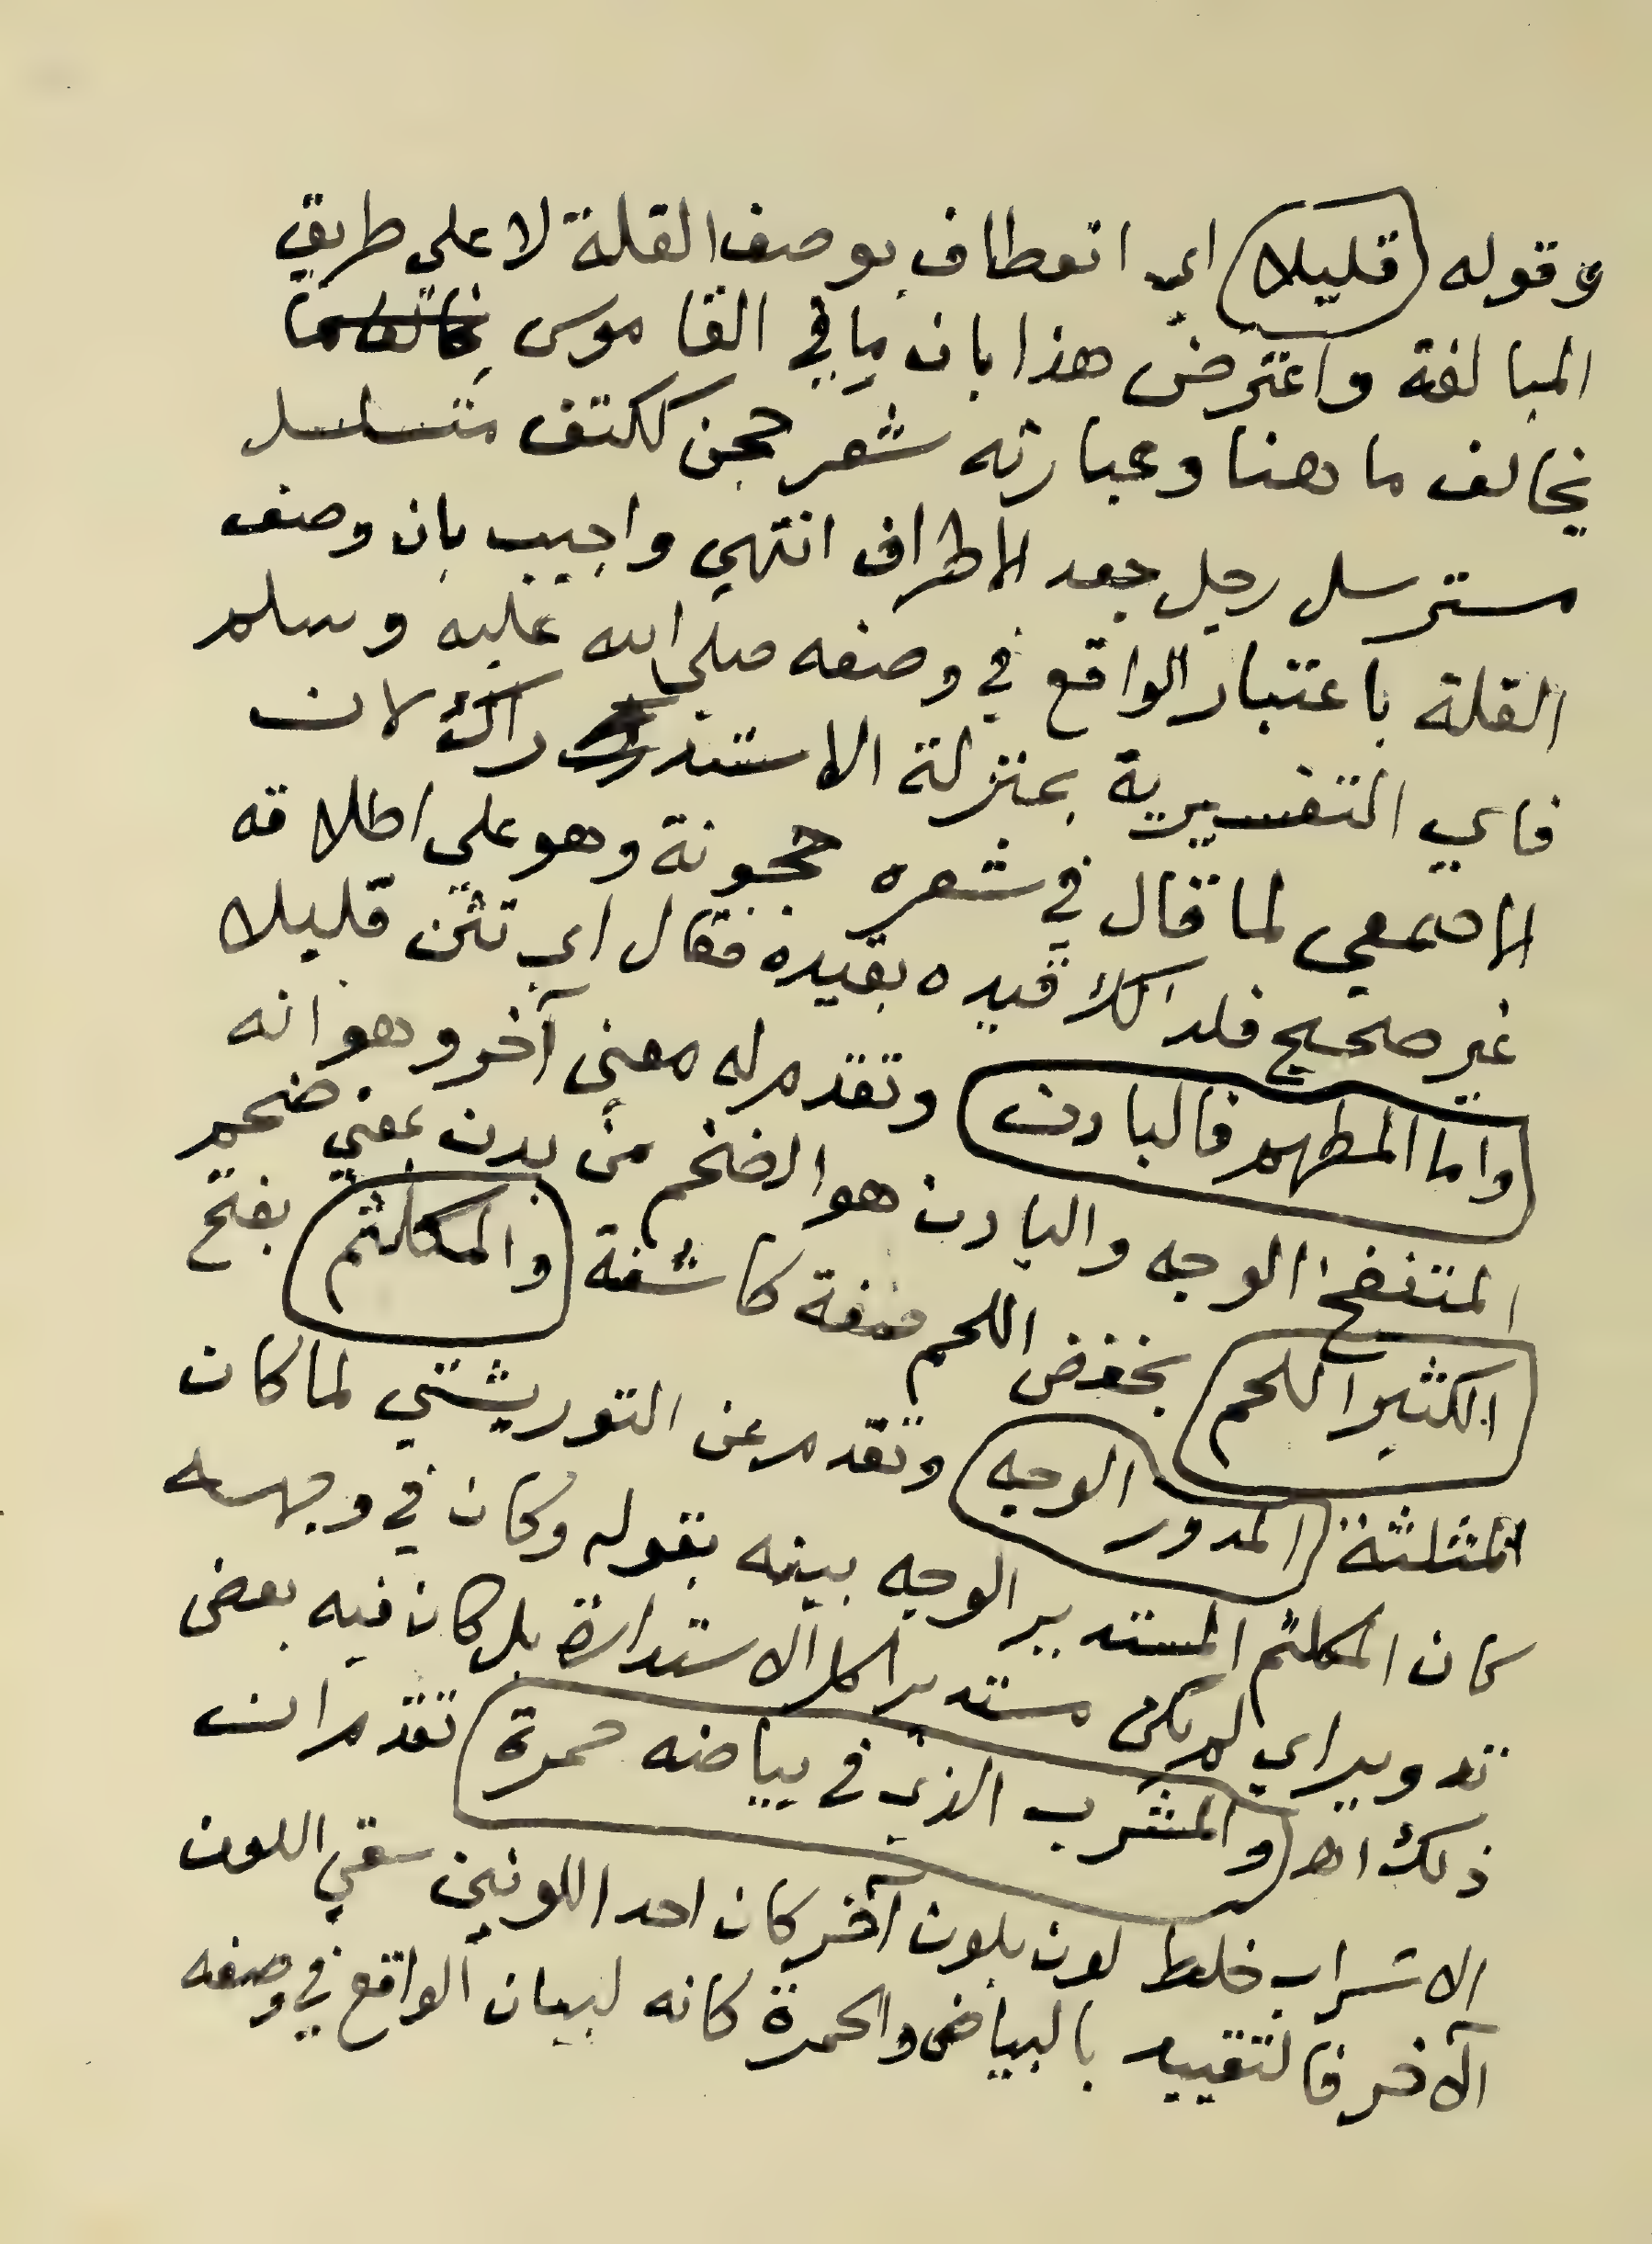 وقوله قليلا اي انعطاف بوصف القلة لا على طريق
المبالغة واعترض هذا بان ما في القاموس
يخالف ما هنا وعبارته شعر حجن ككتف متسلسل
مسترسل رجل جعد الاطراف انتهي واجيب بان وصف
القلة باعتبار الواقع في وصفه صلى الله عليه وسلم
فاي التفسيرية بمنزلة الاستدراك لان
الاصمعي لما قال في شعره حجونة وهو على اطلاقه
غير صحيح فلذلك قيده بقيده فقال اي تثن قليلا
واما المطهم فالبادن وتقدم له معنى آخر وهو انه
المنتفخ الوجه والبادن هو الضخم من بدن بمعني ضخم
الكثير اللحم بخفض اللحم صفة كاشفة والمكلثم بفتح
المثلثة المدور الوجه وتقدم عن التوربشتي لما كان
كان المكلثم المستدير الوجه بينه بقوله وكان في وجهه
تدوير اي لم يكن مستديرا كل الاستدارة بل كان فيه بعض
ذلك اهـ والمشرب الذي في بياضه حمرة تقدم ان
الاشراب خلط لون بلون آخر كان احد اللونين سقي اللون
الآخر فالتقييد بالبياض والحمرة كانه لبيان الواقع في وصفه